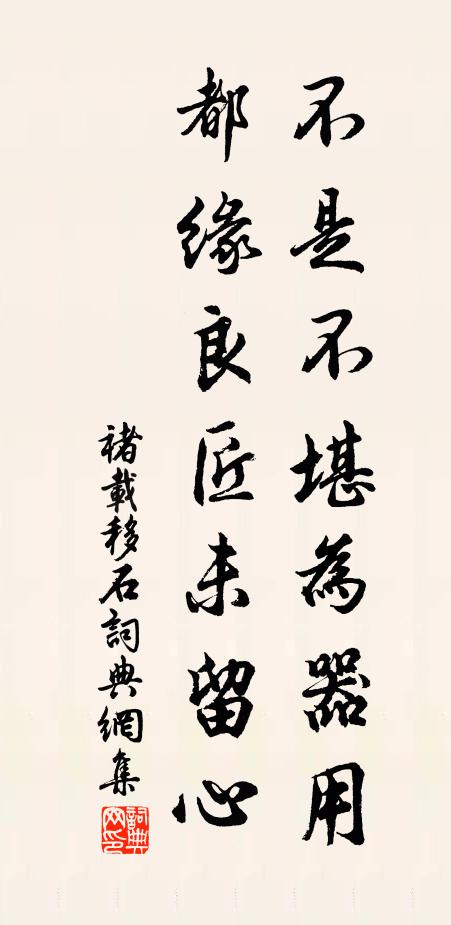 不是不堪為器用
都緣良匠未留心
褚載移石詞典網集
詞典網印